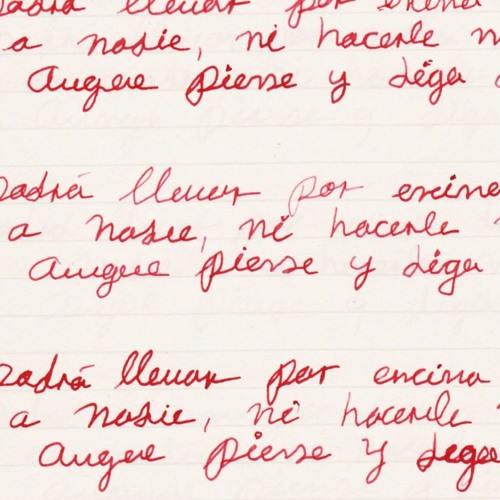 podrá llevar por encima
a nadie, ni hacerle
Aunque piense y diga
podrá llevar por encima
a nadie, ni hacerle
Aunque piense y diga
podrá llevar por encima
a nadie, ni hacerle
Aunque piense y diga